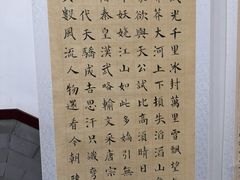 光千里冰封萬里雪飄望
莽大河上下頓失滔滔山
欲與天公試比高須晴日
妖嬈江山如此多嬌引無
秦皇漢武略輸文采唐宗
代天驕成吉思汗只識彎
數風流人物還看今朝